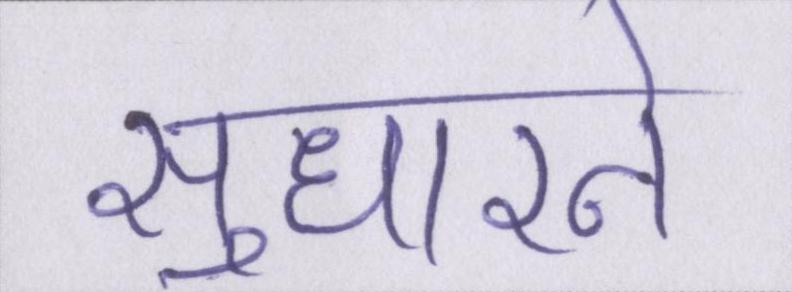 सुधारने